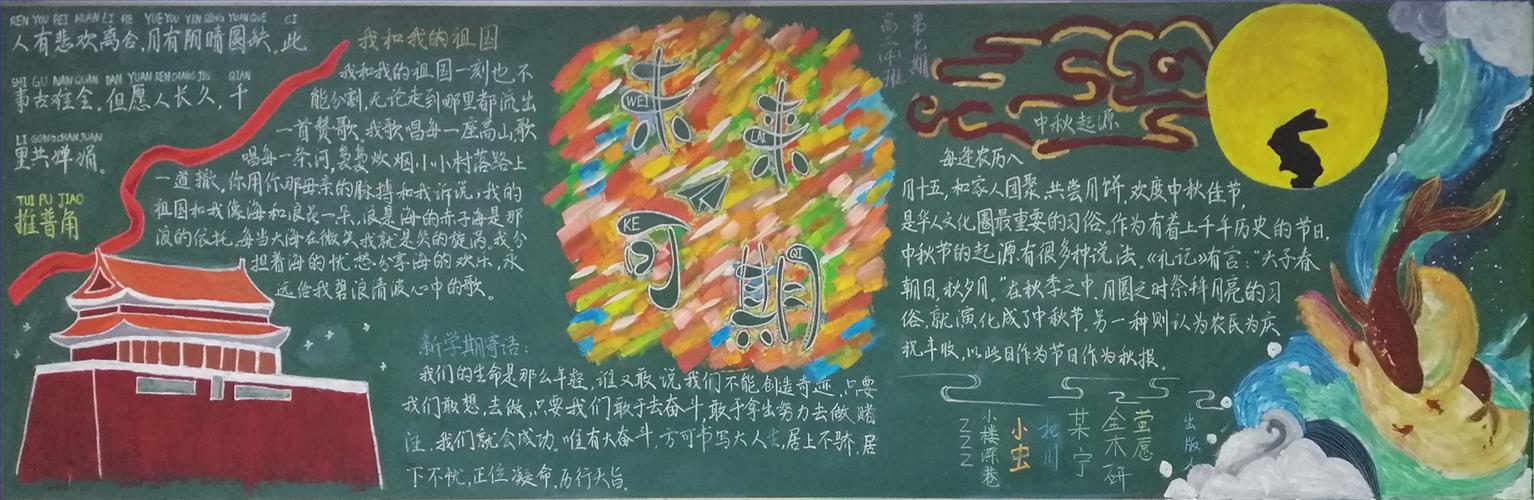 REN YOU BEI HUAN LI HE YUE YOU YIN QING YUAN QUE CI
人有悲欢离合,月有阴晴圆缺,此
SHI GU NAN QUAN DAN YUAN REN CHANG JIU QIAN
事古难全。但愿人长久,千
LI GONG CHAN JUAN
里共婵娟。
TUI PU JIAO
推普角
我和我的祖国
我和我的祖国一刻也不
能分割,无论走到哪里都流出
一首赞歌,我歌唱每一座高山,歌
唱每一条河,袅袅炊烟,小小村落,路上
一道辙,你用你那母亲的脉搏和我诉说,我的
祖国和我像海和浪花一朵,浪是海的赤子海是那
浪的依托,每当大海在微笑,我就是笑的旋涡,我分
担着海的忧愁分享海的欢乐,永
远给我碧浪清波心中的歌。
新学期寄语:
我们的生命是那么年轻,谁又敢说我们不能创造奇迹,只要
我们敢想,去做,只要我们敢于去奋斗,敢于拿出努力去做赌
注,我们就会成功。唯有大奋斗,方可书写大人生,居上不骄,居
下不忧,正位凝命,厉行天旨。
WEI
未
LAI
来
KE
可
QI
期
第七期
高二(4)班
中秋起源
每逢农历八
月十五,和家人团聚,共尝月饼,欢度中秋佳节,
是华人文化圈最重要的习俗。作为有着上千年历史的节日,
中秋节的起源有很多种说法。《礼记》有言:“天子春
朝日,秋夕月。”在秋季之中,月圆之时祭拜月亮的习
俗,就演化成了中秋节。另一种则认为农民为庆
祝丰收,以此日作为节日作为秋报。
出版人
萤愿
金木研
某宁
小虫
小楼深巷
ZZZ